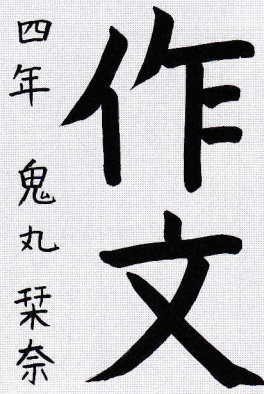 作文
四年 鬼丸 栞奈